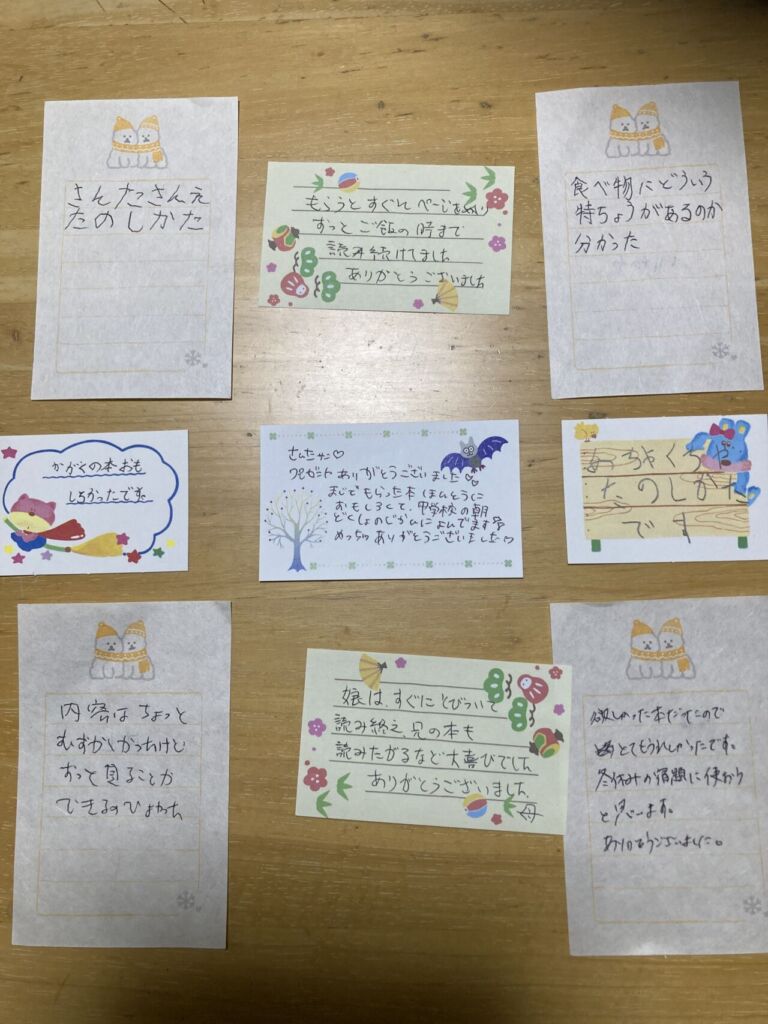 さんたさんえ
たのしかた
もらうと すぐに ページをめくり
ずっと ご飯の時まで
読み続けてました
ありがとうございました
食べ物にどういう
特ちょうがあるのか
分かった
かがくの本おも
しろかったです。
さんたさん♡
プレゼント ありがとうございました♡
まじで もらった本 ほんとうに
おもしろくて、中学校の朝
どくしょのじかんによんでます
めっちゃ ありがとうございました♡
めちゃくちゃ
たのしかた
です
内容はちょっと
むずかしかったけど
ずっと見ることが
できるのでよかった
娘は、すぐにとびついて
読み終え、兄の本も
読みたがるなど大喜びでした
ありがとうございました。
母
欲しかった本だったので
とてもうれしかったです。
冬休みの宿題に使おう
と思います。
ありがとうございました。